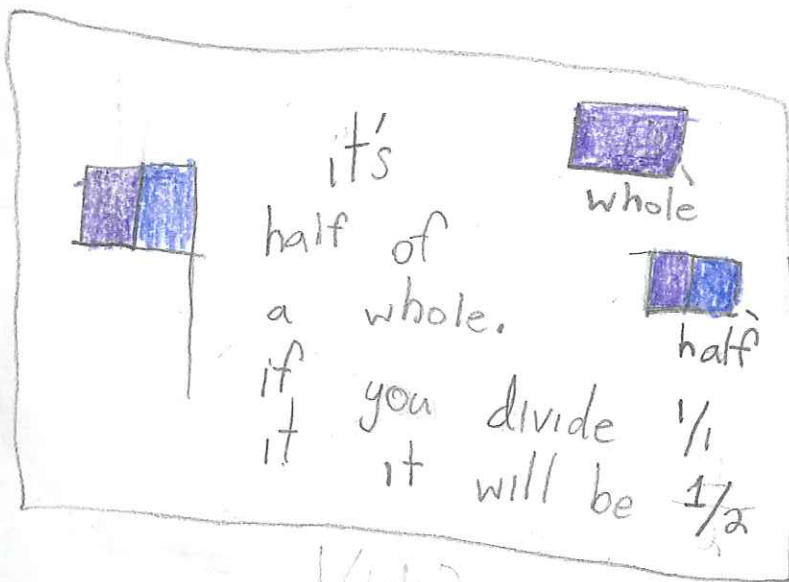 it's
half of
a whole.
if you divide 1/1
it it will be 1/2
whole
half